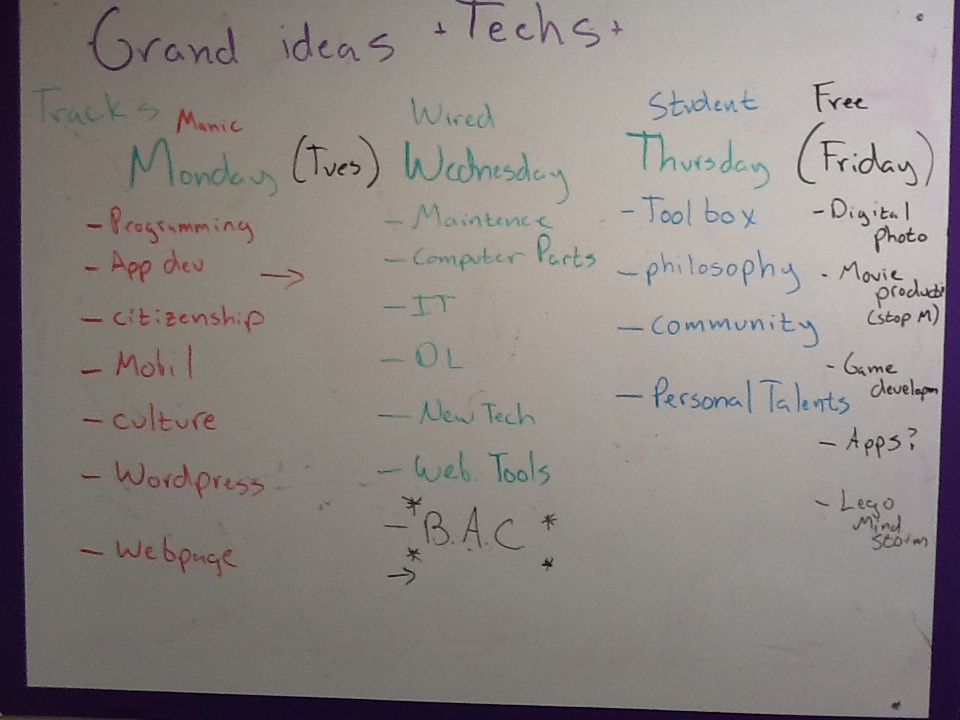 Grand ideas + Techs +
Tracks
Manic
Monday (Tues)
- Programming
- App dev →
- citizenship
- Mobil
- culture
- Wordpress
- Webpage
Wired
Wednesday
- Maintence
- Computer Parts
- IT
- OL
- New Tech
- Web Tools
* - B.A.C *
* *
→
Student
Thursday
- Tool box
- philosophy
- community
- Personal Talents
Free
(Friday)
- Digital
photo
- Movie
producti
(stop M)
- Game
developm
- Apps?
- Lego
Mind
Storm